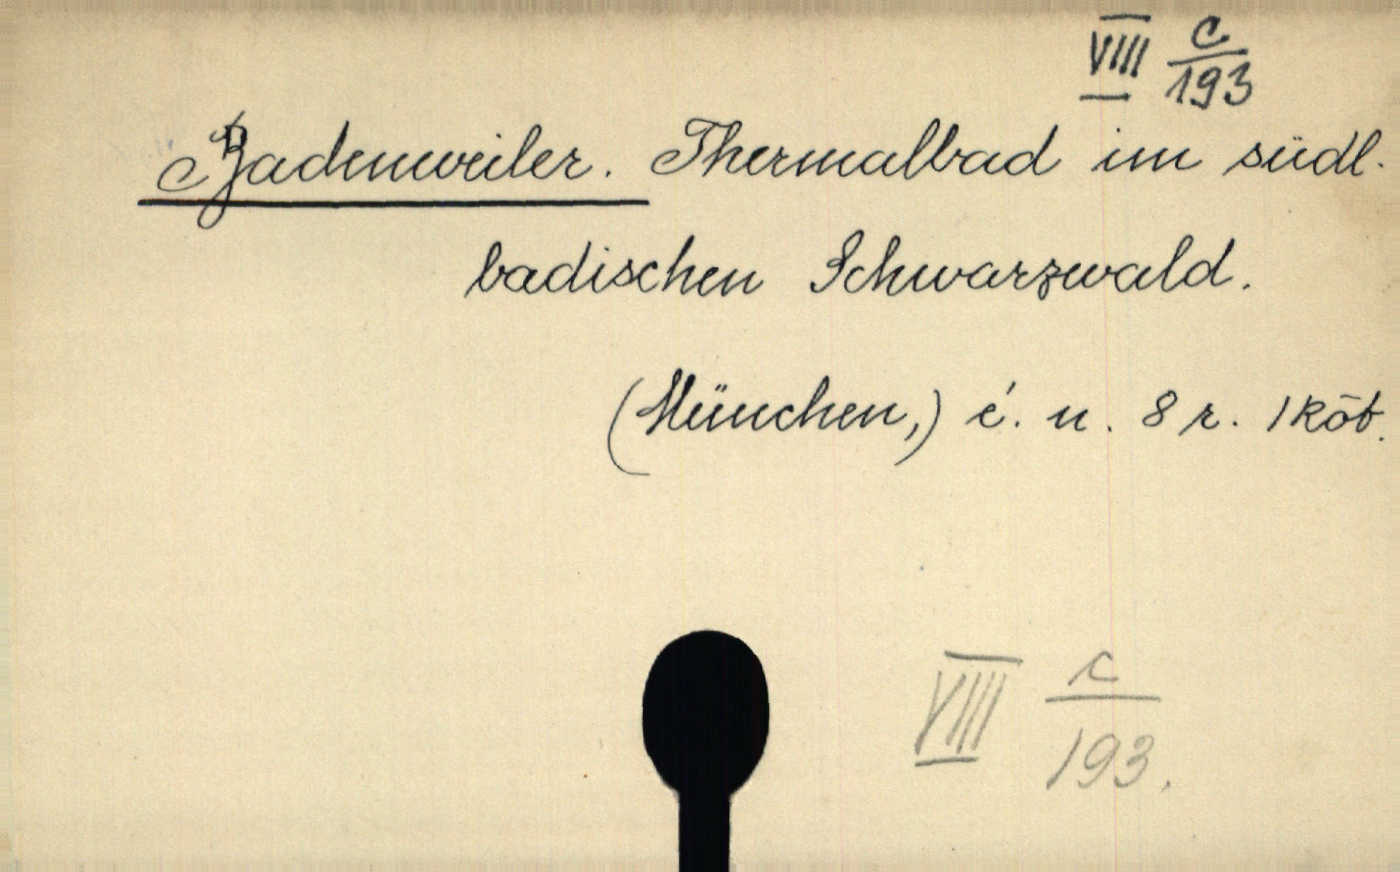 VIII c/193
Badenweiler. Thermalbad im südl.
badischen Schwarzwald.
(München,) é. n. 8 r. 1 köt.
VIII c/193.